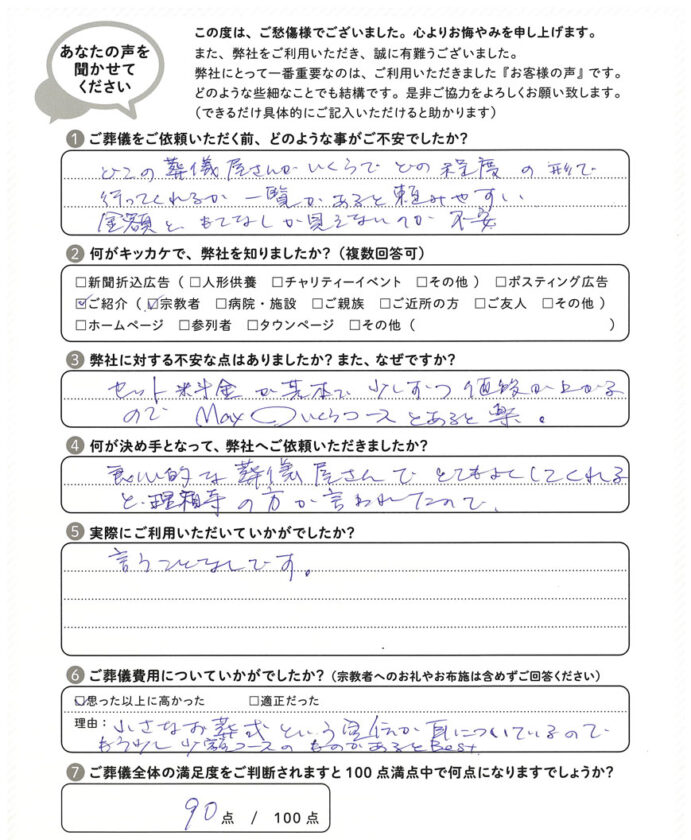 あなたの声を
聞かせて
ください
この度は、ご愁傷様でございました。心よりお悔やみを申し上げます。
また、弊社をご利用いただき、誠に有難うございました。
弊社にとって一番重要なのは、ご利用いただきました『お客様の声』です。
どのような些細なことでも結構です。是非ご協力をよろしくお願い致します。
（できるだけ具体的にご記入いただけると助かります）
1 ご葬儀をご依頼いただく前、どのような事がご不安でしたか？
どこの葬儀屋さんがいくらでどの程度の形で
行ってくれるか一覧があると頼みやすい
金額と、もてなしが見えないのが不安
2 何がキッカケで、弊社を知りましたか？（複数回答可）
□新聞折込広告（□人形供養 □チャリティーイベント □その他） □ポスティング広告
☑ご紹介（☑宗教者 □病院・施設 □ご親族 □ご近所の方 □ご友人 □その他）
□ホームページ □参列者 □タウンページ □その他（ ）
3 弊社に対する不安な点はありましたか？また、なぜですか？
セット料金が基本で少しずつ値段が上がる
ので Max〇いくらコースとあると楽。
4 何が決め手となって、弊社へご依頼いただきましたか？
良心的な葬儀屋さんでとてもよくしてくれる
と、の方が言われたので、
5 実際にご利用いただいていかがでしたか？
言うことなしです。
6 ご葬儀費用についていかがでしたか？（宗教者へのお礼やお布施は含めずご回答ください）
☑思った以上に高かった □適正だった
理由：小さなお葬式という宣伝が耳についているので
もう少し少額コースのものがあるとBest
7 ご葬儀全体の満足度をご判断されますと100点満点中で何点になりますでしょうか？
90点 / 100点